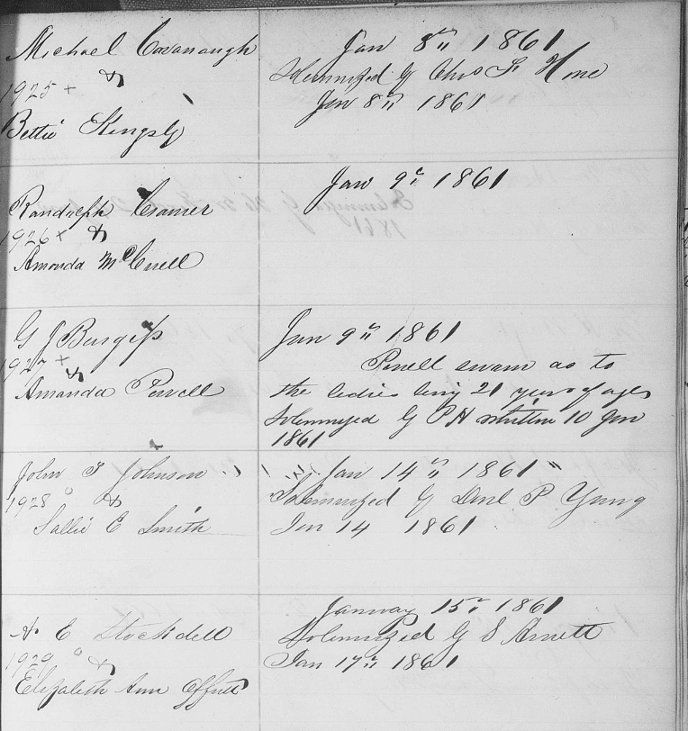 Michael Cavanaugh
1925 + &
Bettie Kingsly
Jan 8th 1861
Solemnized by Chas F. Hone
Jan 8th 1861
Randolph Cramer
1926 + &
Amanda
Jan 9th 1861
G J Burgess
1927 + &
Amanda Powell
Jan 9th 1861
Powell sworn as to
the ladies being 21 years of age
Solemnized by P H 10 Jan
1861
John T Johnson
1928 &
Sallie E Smith
Jan 14th 1861
Solemnized by Danl P Young
Jan 14 1861
E Stockdell
1929 &
Elizabeth Ann Offutt
January 15th 1861
Solemnized by S Arnett
Jan 17th 1861